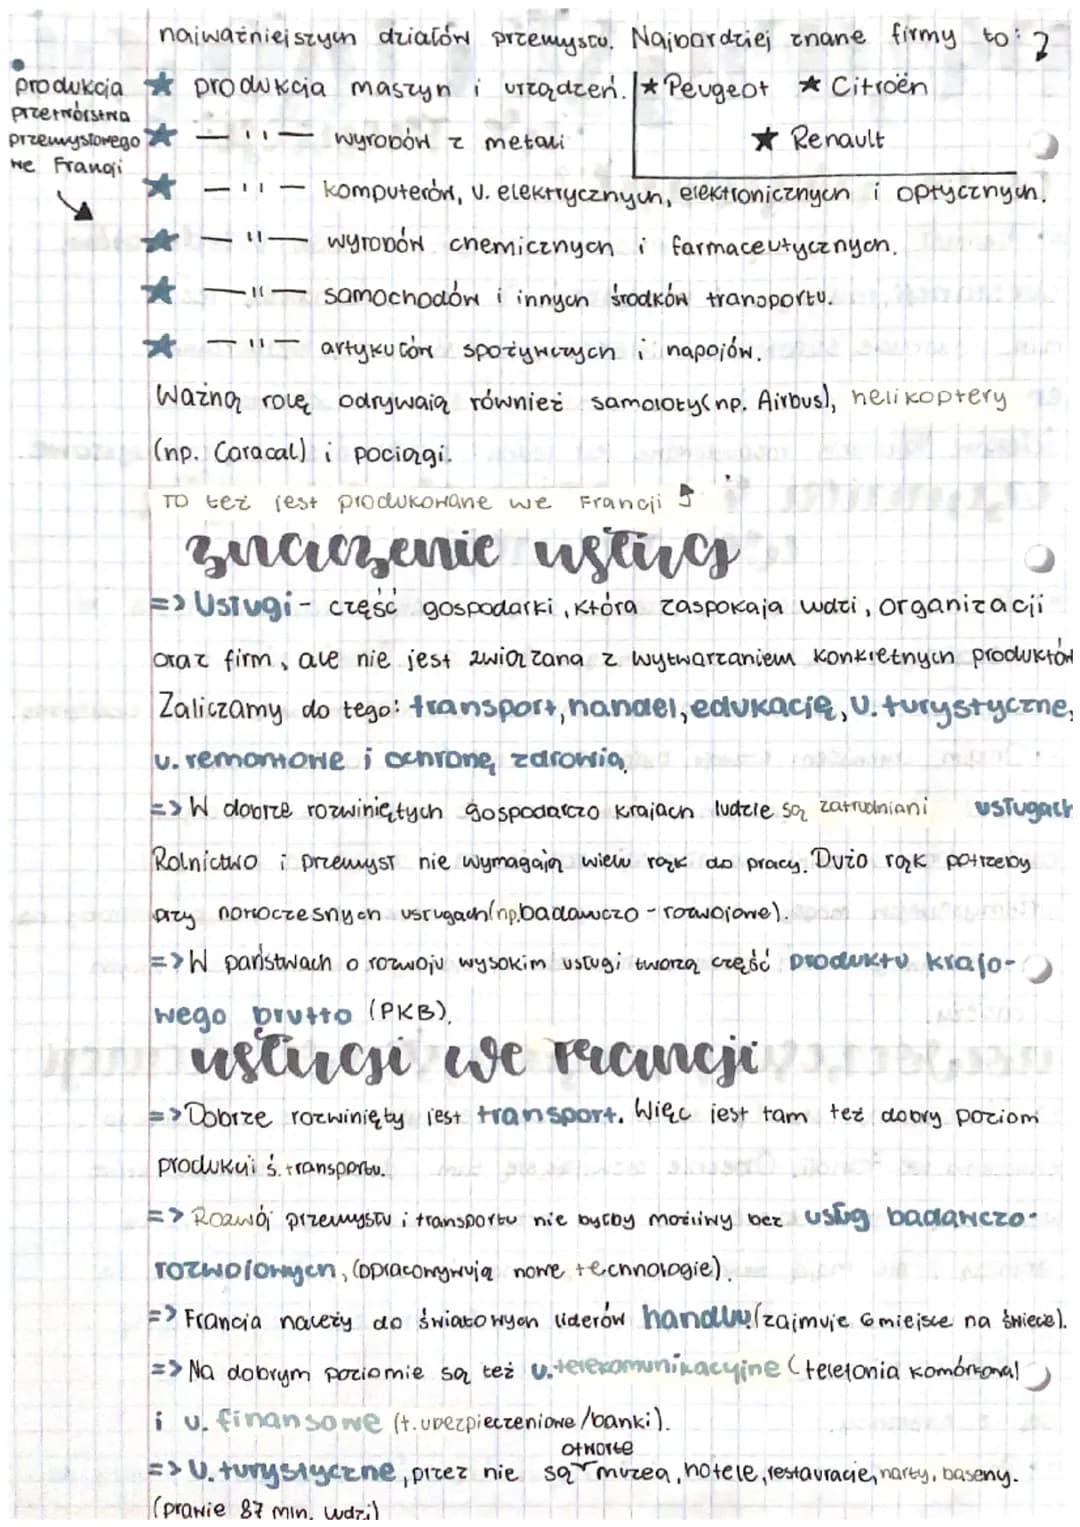 najważniejszych działów przemysłu. Najbardziej znane firmy to:
produkcja przetwórstwa przemysłowego we Francji
★ produkcja maszyn i urządzeń. ★ Peugeot ★ Citroën
★ Renault
★ — 11 — wyrobów z metali
★ — 11 — komputerów, u. elektrycznych, elektronicznych i optycznych.
★ — 11 — wyrobów chemicznych i farmaceutycznych.
★ — 11 — samochodów i innych środków transportu.
★ — 11 — artykułów spożywczych i napojów.
Ważną rolę odrywają również samoloty (np. Airbus), helikoptery
(np. Caracal) i pociągi.
TO też jest produkowane we Francji
znaczenie usług
=> Usługi - część gospodarki, która zaspokaja ludzi, organizacji
oraz firm, ale nie jest związana z wytwarzaniem konkretnych produktów
Zaliczamy do tego: transport, handel, edukację, U. turystyczne,
u. remontowe i ochronę zdrowia.
=> W dobrze rozwiniętych gospodarczo krajach ludzie są zatrudniani usługach
Rolnictwo i przemysł nie wymagają wielu rąk do pracy. Dużo rąk potrzeby
przy nowoczesnych usługach (np. badawczo - rozwojowe).
=> W państwach o rozwoju wysokim usługi tworzą część produktu krajo-
wego brutto (PKB).
usługi we Francji
=> Dobrze rozwinięty jest transport. Więc jest tam też dobry poziom
produkcji ś. transportu.
=> Rozwój przemysłu i transportu nie byłby możliwy bez usług badawczo-
rozwojowych, (opracowywują nowe technologie).
=> Francja należy do światowych liderów handlu (zajmuje 6 miejsce na świecie).
=> Na dobrym poziomie są też u. telekomunikacyjne (telefonia komórkowa)
i u. finansowe (t. ubezpieczeniowe / banki).
otworte
=> U. turystyczne, przez nie są muzea, hotele, restauracje, narty, baseny.
(prawie 87 mln. ludzi)